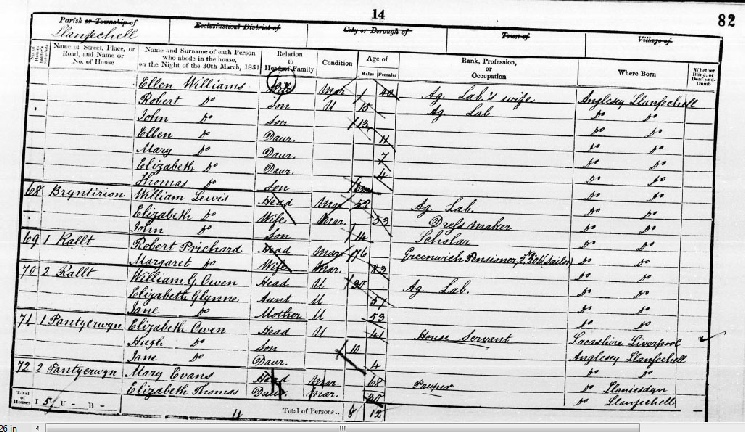 14
82
Parish or Township of
Ecclesiastical District of
City or Borough of
Town of
Village of
Llanfechell
Name of Street, Place, or Road, and Name or No. of House
Name and Surname of each Person who abode in the house, on the Night of the 30th March, 1851
Relation to Head of Family
Condition
Age of
Males Females
Rank, Profession, or Occupation
Where Born
Ellen Williams Wife Mar 42 Ag Lab's wife Anglesey Llanfechell
Robert Do Son U 15 Ag Lab Do Do
John Do Son 13 Do Do
Ellen Do Daur. 11 Do Do
Mary Do Daur. 7 Do Do
Elizabeth Do Daur. 4 Do Do
Thomas Do Son Do Do
68 Bryntirion William Lewis Head Mar Ag Lab. Do Do
Elizabeth Do Wife Mar. 53 Dress maker Do Do
John Do Son 14 Scholar Do Do
69 1 Kallt Robert Prichard Head Mar 76 Greenwich Pensioner Do Do
Margaret Do Wife Mar. Do Do
70 2 Kallt William G. Owen Head U 30 Ag Lab. Do Do
Elizabeth Glynne Aunt U 57 Do Do
Jane Do Mother U 53 Do Do
71 1 Pantyerwyn Elizabeth Owen Head U 41 House Servant Liverpool
Hugh Do Son 10 Anglesey Llanfechell
Jane Do Daur. 4 Do Do
72 2 Pantyerwyn Mary Evans Head 67 Pauper Do
Elizabeth Thomas Daur. Mar. Do Llanfechell
Total of Houses I 5 U - B -
Total of Persons 8 12
26 in